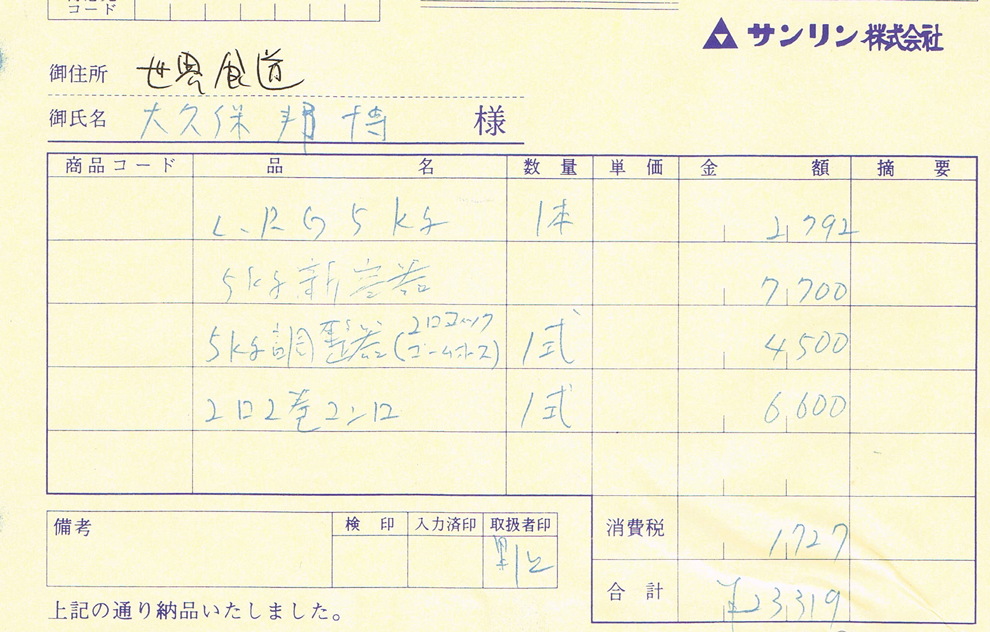 コード
サンリン株式会社
御住所 世界食道
御氏名 大久保 邦博 様
商品コード 品名 数量 単価 金額 摘要
L.P.G 5kg 1本 2,792
5kg新容器 7,700
5kg調整器(2口コック ゴムホース) 1式 4,500
2口2巻コンロ 1式 6,600
備考 検印 入力済印 取扱者印
消費税 1,727
合計 ¥23,319
上記の通り納品いたしました。